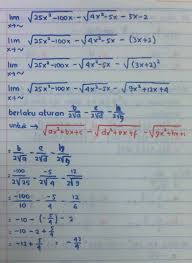 lim x→~ √25x²-100x - √4x²-5x - 3x-2
lim x→~ √25x²-100x - √4x²-5x - (3x+2)
lim x→~ √25x²-100x - √4x²-5x - √(3x+2)²
lim x→~ √25x²-100x - √4x²-5x - √9x²+12x+4
berlaku aturan b/2√a - e/2√d - h/2√g
untuk → √ax²+bx+c - √dx²+ex+f - √gx²+hx+i
= b/2√a - e/2√d - h/2√g
= -100/2√25 - -5/2√4 - 12/2√9
= -100/10 - -5/4 - 12/6
= -10 - (-5/4) - 2
= -10 - 2 + 5/4
= -12 + 5/4 = - 43/4